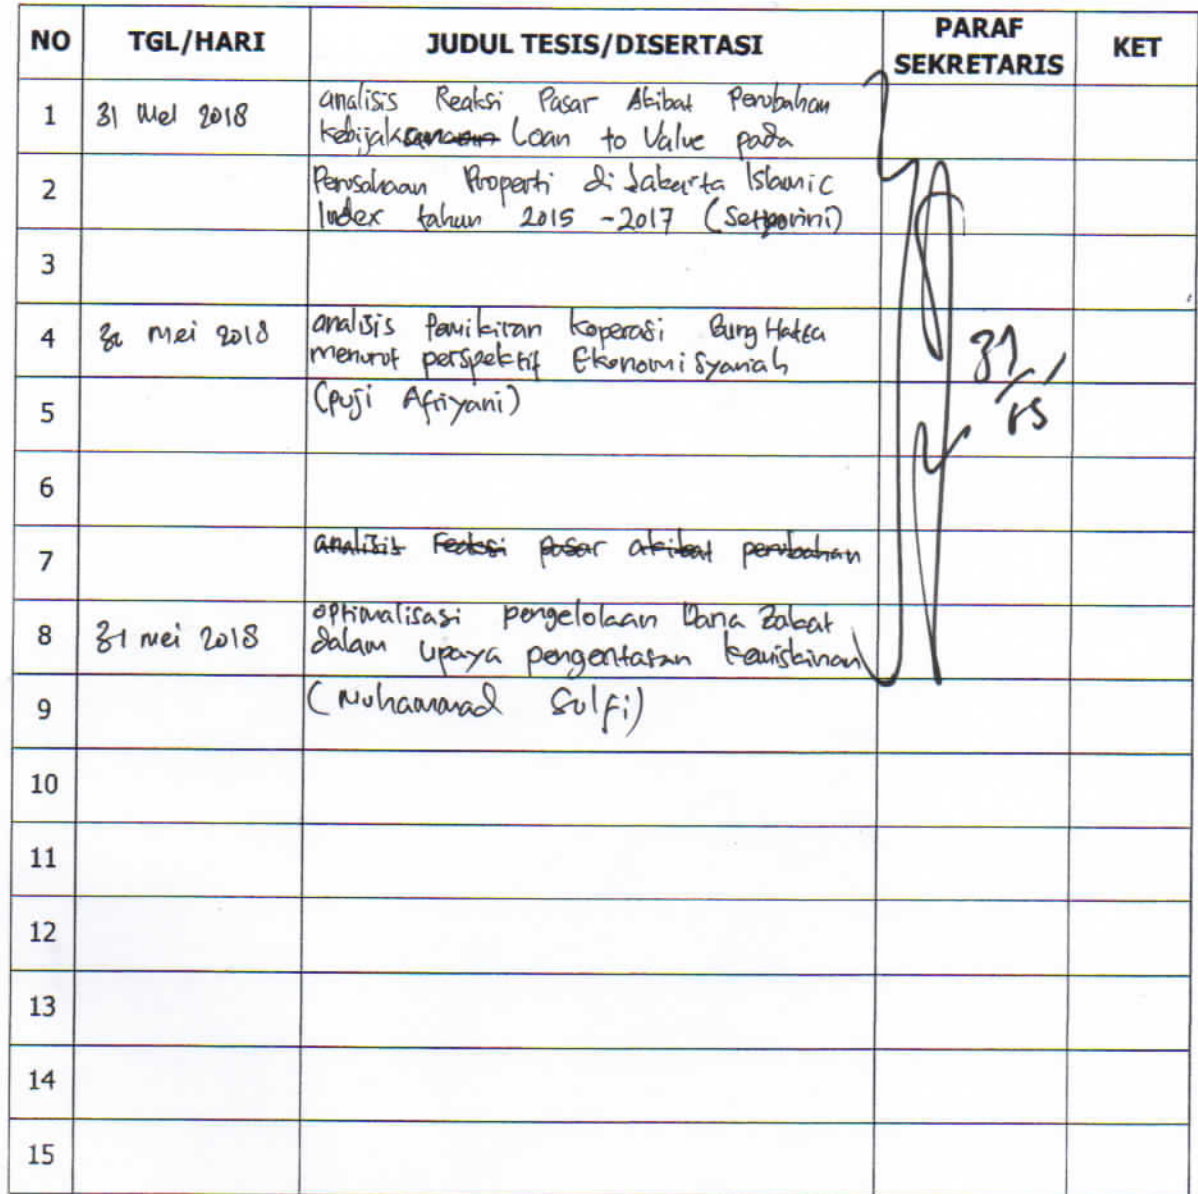 NO TGL/HARI JUDUL TESIS/DISERTASI PARAF SEKRETARIS KET
1 31 Mei 2018 analisis Reaksi Pasar Akibat Perubahan
kebijaksanaan Loan to Value pada
2 Perusahaan Properti di Jakarta Islamic
Index tahun 2015 - 2017 (Setyorini)
3
4 31 mei 2018 analisis Pemikiran koperasi Bung Hatta
menurut perspektif Ekonomi Syariah
5 (Puji Afriyani)
31/05
6
7 analisis reaksi pasar akibat perubahan
8 31 mei 2018 optimalisasi pengelolaan Dana Zakat
dalam upaya pengentasan kemiskinan
9 (Muhammad Sulfi)
10
11
12
13
14
15